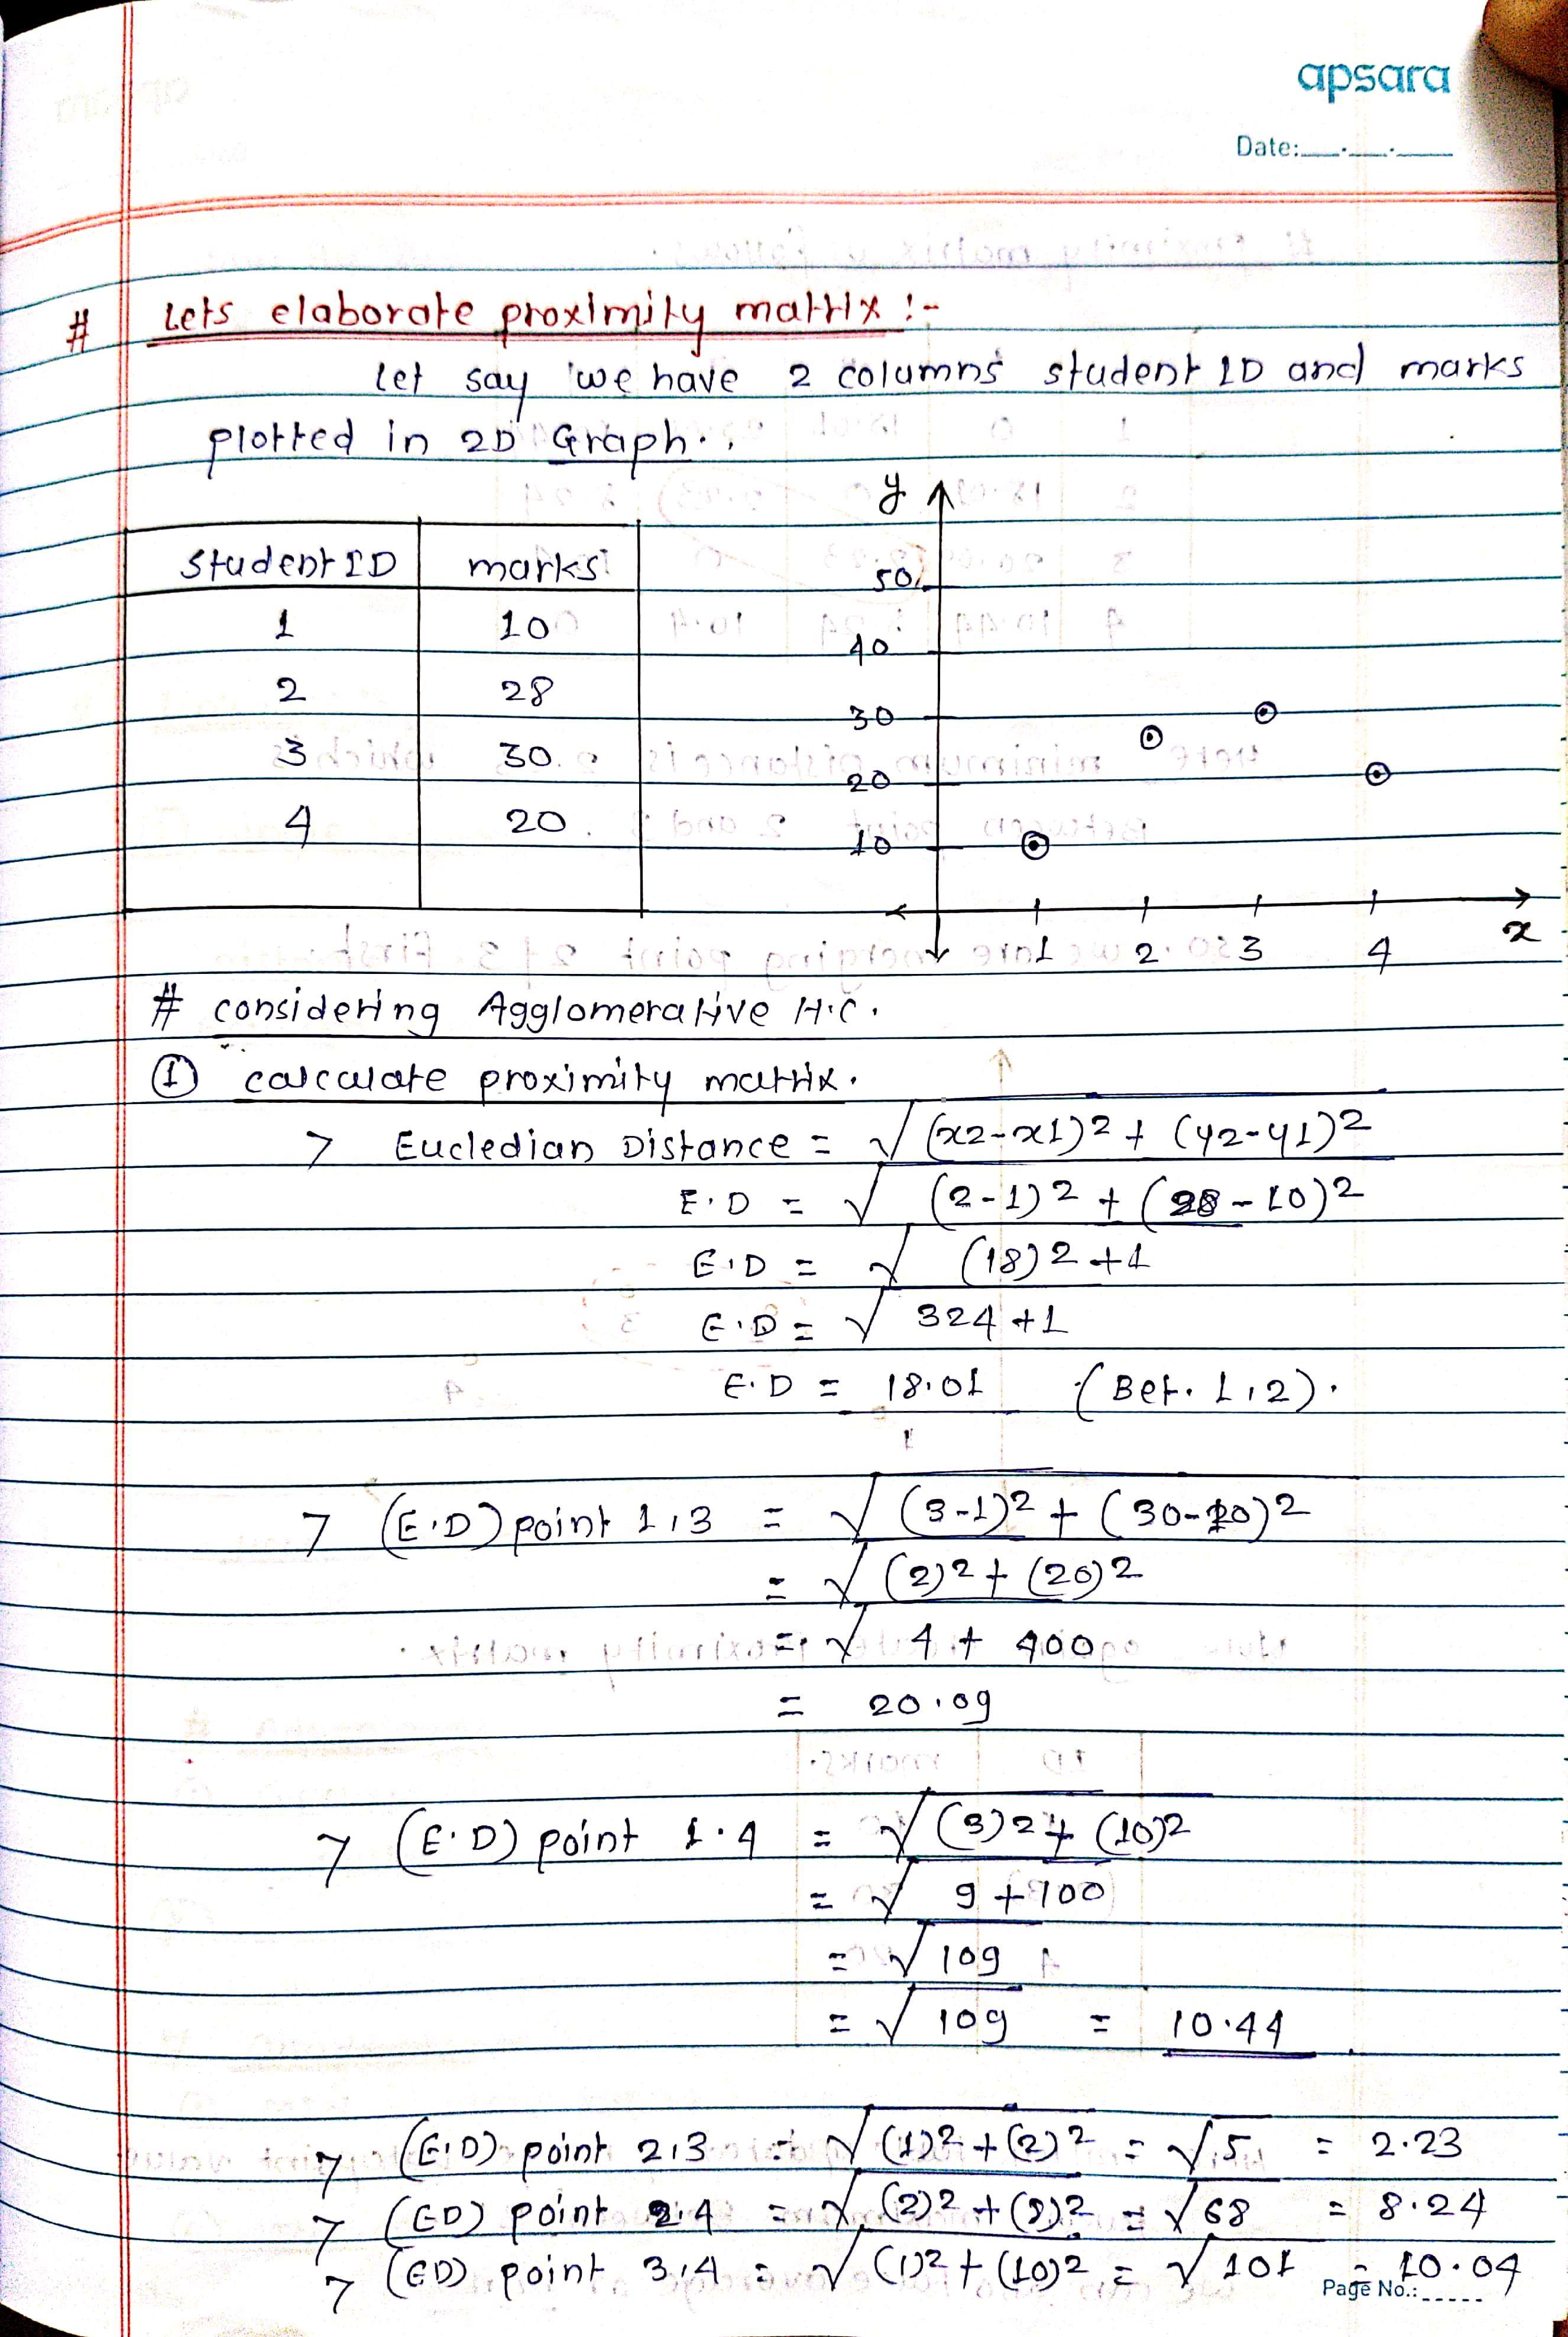 apsara
Date:
# Lets elaborate proximity matrix :-
Let say we have 2 columns student ID and marks
plotted in 2D Graph.
y
student ID marks
50
1 10
40
2 28
30
3 30
20
4 20
10
1 2 3 4 x
# considering Agglomerative H.C.
① calculate proximity matrix.
> Eucledian Distance = √(x2-x1)2 + (y2-y1)2
E.D = √(2-1)2 + (28-10)2
E.D = √(18)2+1
E.D = √324+1
E.D = 18.01 (Bet. 1,2).
> (E.D) point 1,3 = √(3-1)2 + (30-10)2
= √(2)2 + (20)2
= √4 + 400
= 20.09
> (E.D) point 1.4 = √(3)2 + (10)2
= √9+100
= √109
= √109 = 10.44
> (E.D) point 2,3 = √(1)2 + (2)2 = √5 = 2.23
> (ED) point 2.4 = √(2)2 + (8)2 = √68 = 8.24
> (ED) point 3,4 = √(1)2 + (10)2 = √101 = 10.04
Page No.: